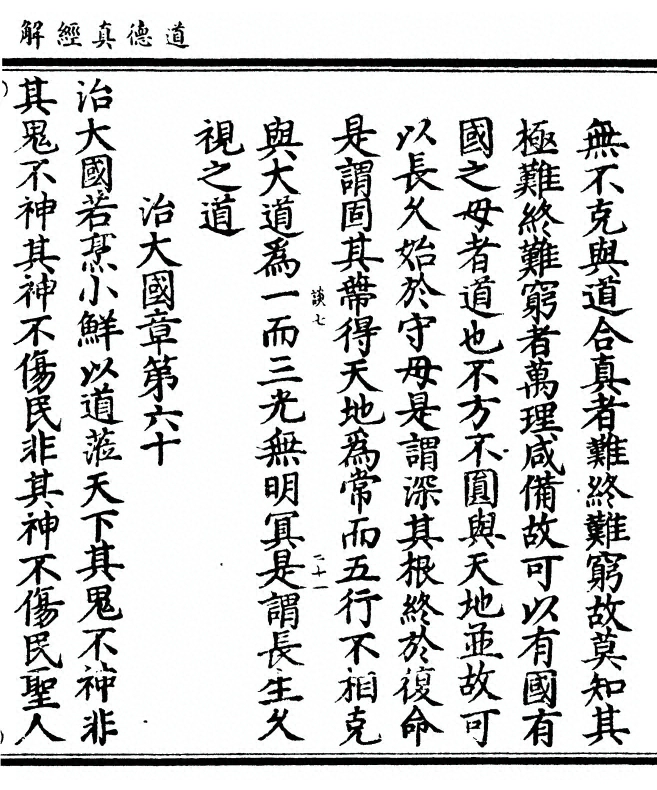 道德真經解
無不克與道合真者難終難窮故莫知其
極難終難窮者萬理咸備故可以有國有
國之母者道也不方不圓與天地並故可
以長久始於守母是謂深其根終於復命
是謂固其蔕得天地為常而五行不相克
談七
二十一
與大道爲一而三光無明冥是謂長生久
視之道
治大國章第六十
治大國若烹小鮮以道蒞天下其鬼不神非
其鬼不神其神不傷民非其神不傷民聖人